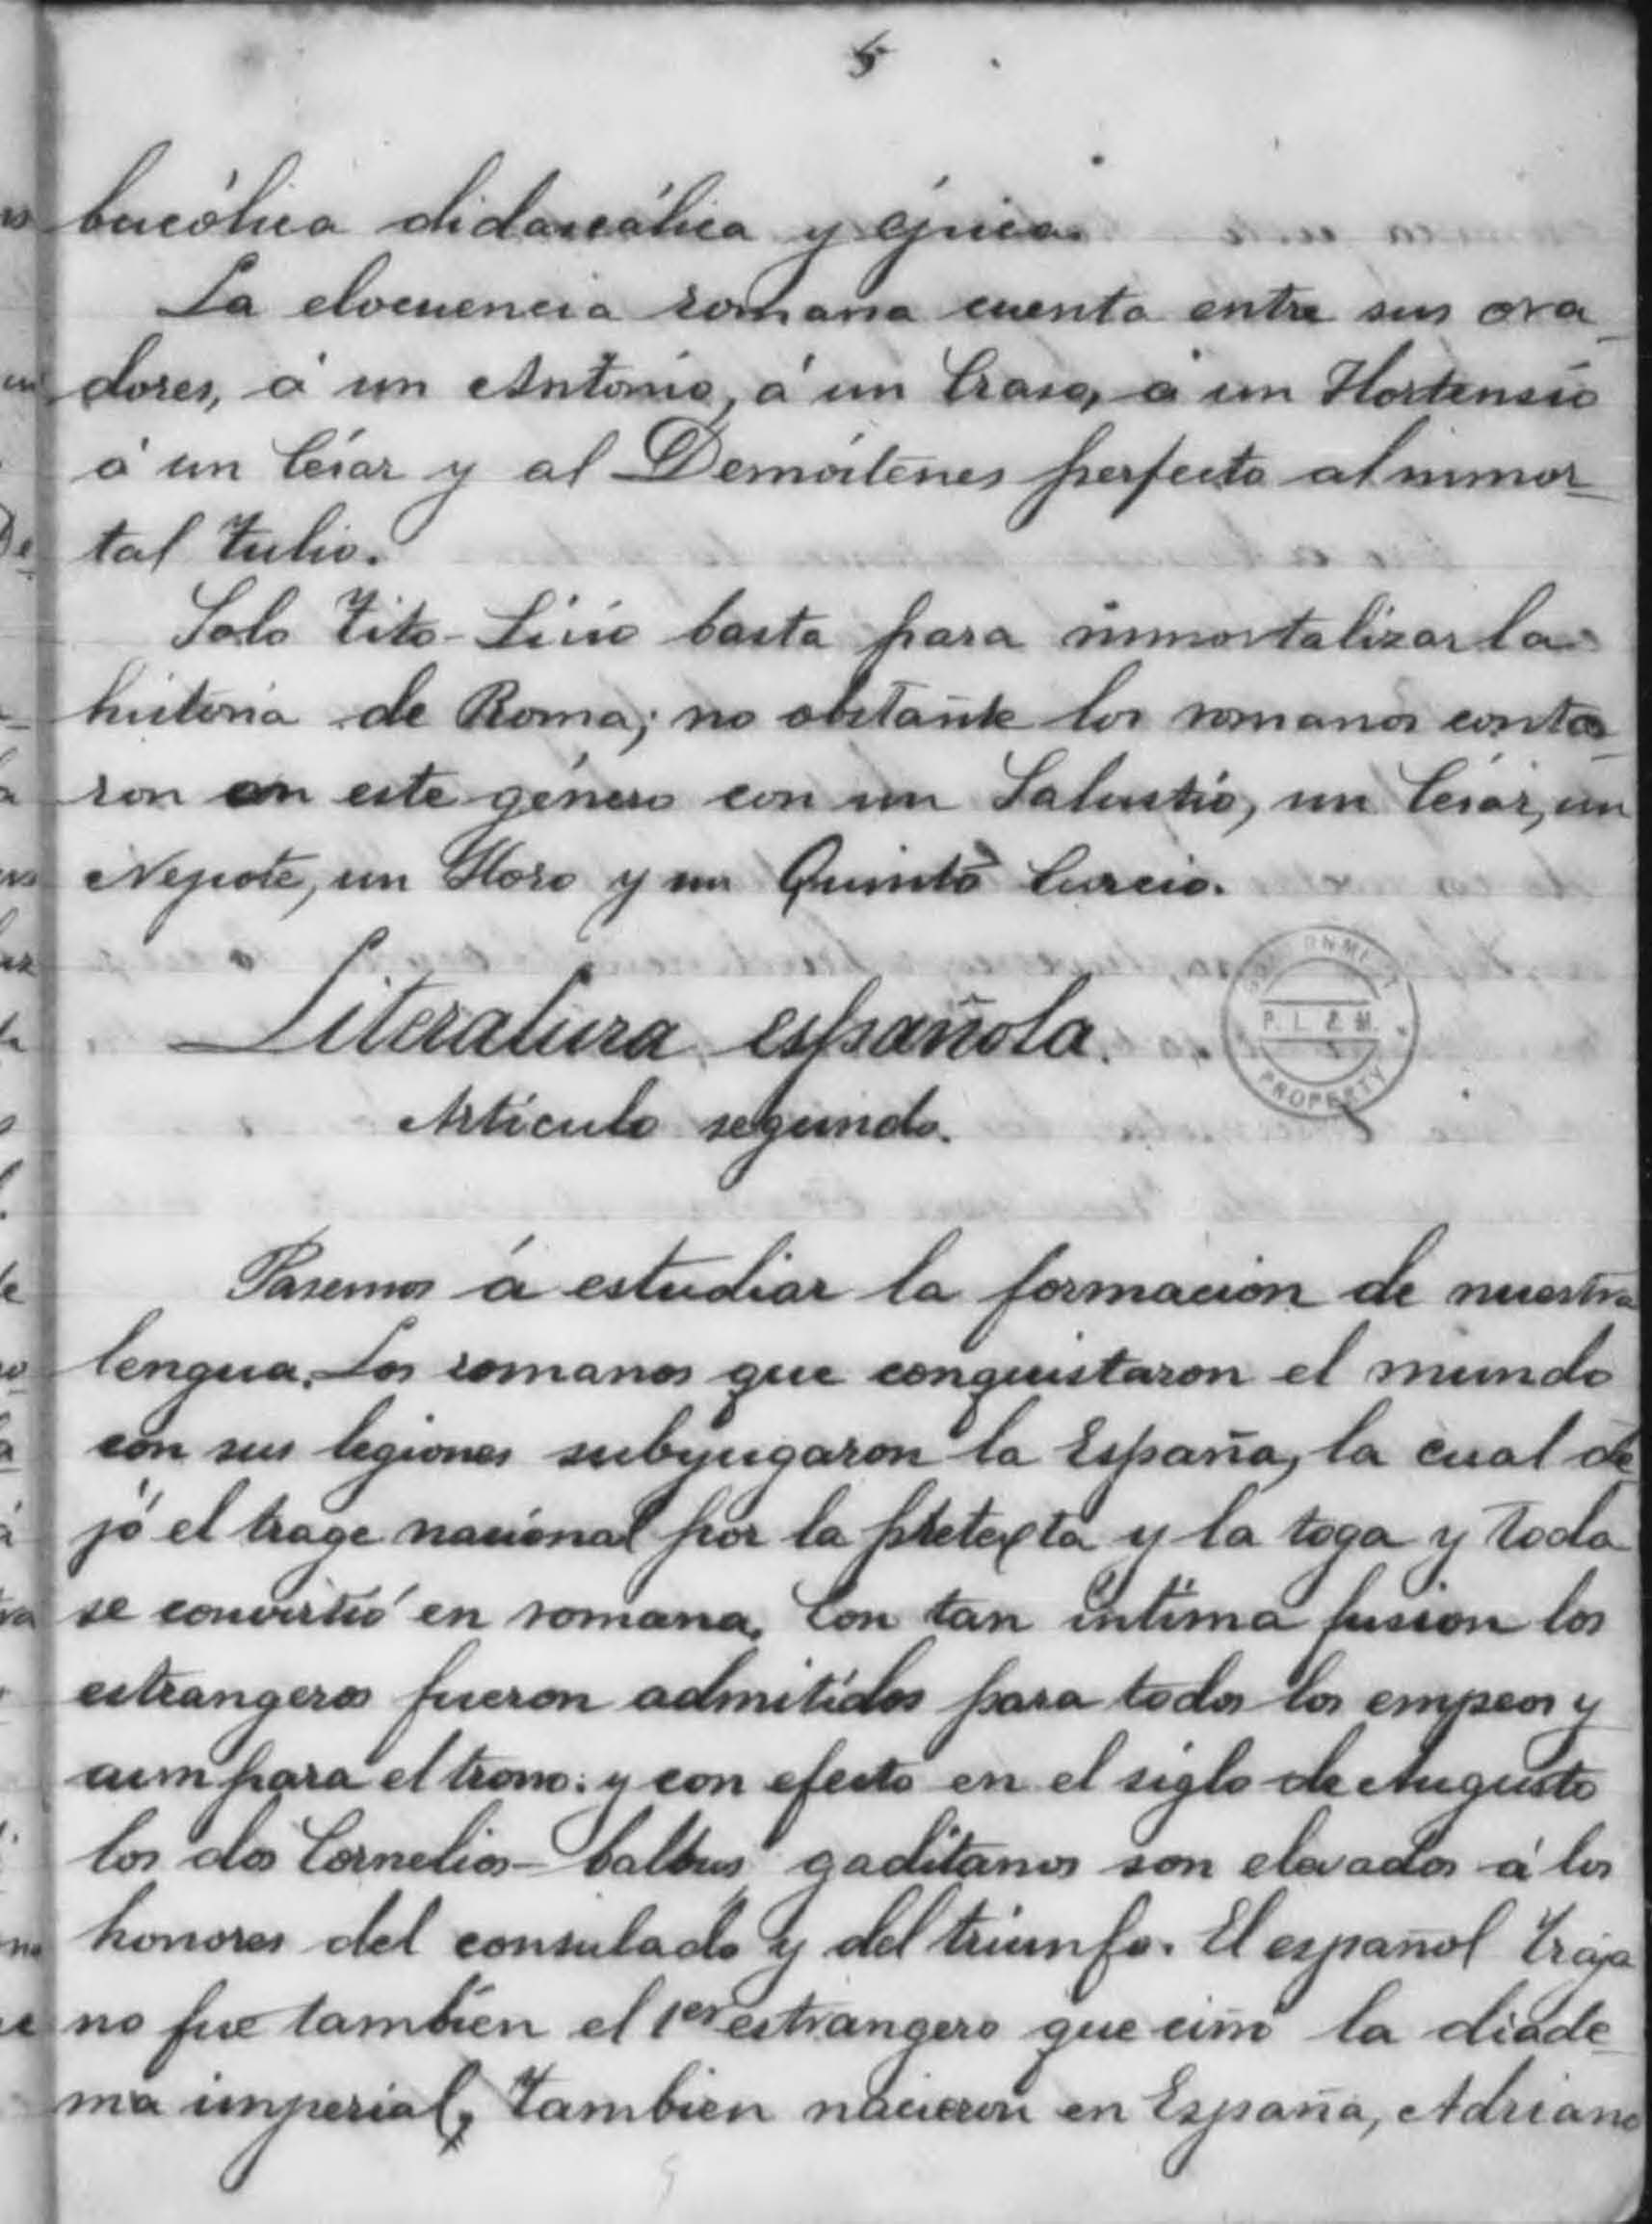 5
bucólica didascálica y épica.
La elocuencia romana cuenta entre sus ora
dores, á un Antonio, á un Craso, á un Hortensio
á un César y al Demóstenes perfecto al inmor
tal Tulio.
Solo Tito-Livio basta para inmortalizar la
historia de Roma; no obstante los romanos conta
ron en este género con un Salustio, un César, un
Nepote, un Floro y un Quinto Curcio.
Literatura española.
Artículo segundo.
GOVERNMENT
P. L. & M.
PROPERTY
Pasemos á estudiar la formacion de nuestra
lengua. Los romanos que conquistaron el mundo
con sus legiones subyugaron la España, la cual de
jó el trage nacional por la pretexta y la toga y toda
se convirtió en romana. Con tan íntima fusion los
estrangeros fueron admitidos para todos los empeos y
aun para el trono: y con efecto en el siglo de Augusto
los dos Cornelios-balbus gaditanos son elevados á los
honores del consulado y del triunfo. El español Traja
no fue tambien el 1er estrangero que ciñó la diade
ma imperial, tambien nacieron en España, Adriano